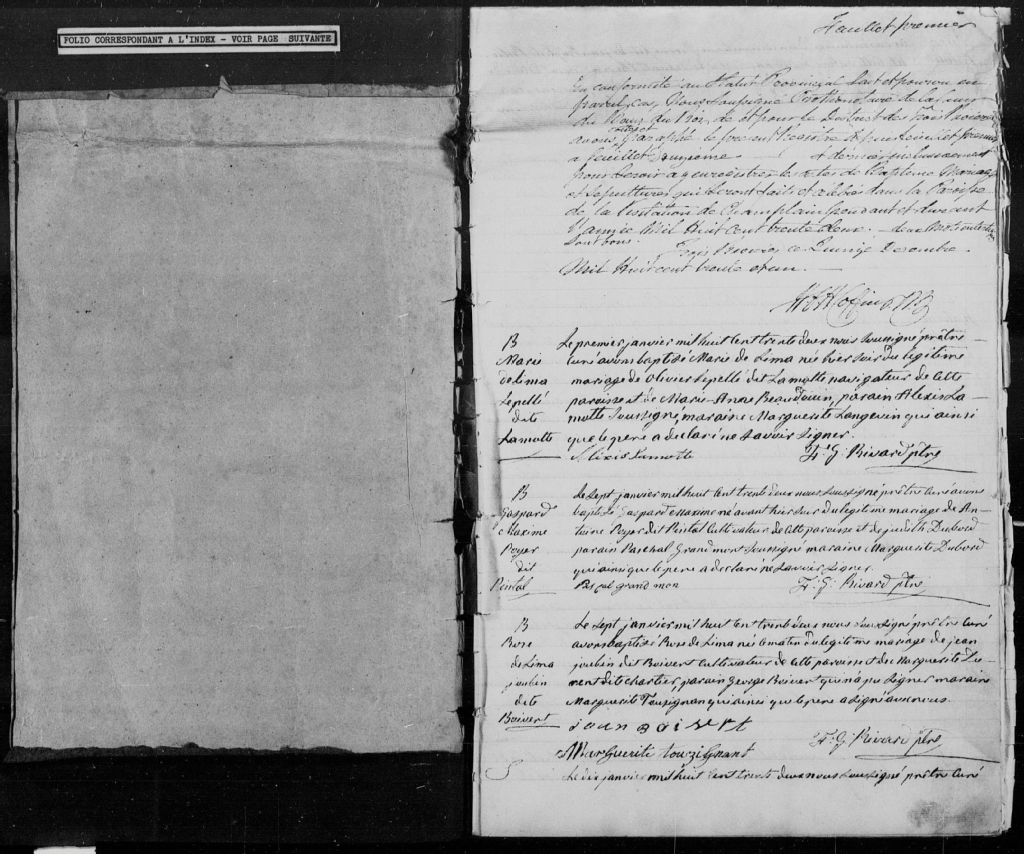 FOLIO CORRESPONDANT A L'INDEX - VOIR PAGE SUIVANTE
Feuillet premier
En conformité au Statut Provincial fait et pourvu en
pareil cas, Nous Soussigné Prothonotaire de la Cour
du Banc du Roi, de et pour le District des Trois Rivieres
avons cotté et Paraphé le present Registre depuis feuillet premier
a feuillet et dernier inclusivement
pour servir a y enregistrer les actes de Baptême Mariage
et Sepultures qui seront faits et celebrés dans la Paroisse
de la Visitation de Champlain pendant et durant
l'année Mil huit cent trente deux. - deux mots
sont bons.
Trois Rivieres ce Decembre
Mil huit cent trente et un. -
B
Marie
delima
Lepellé
dite
Lamotte
Le premier janvier mil huit cent trente deux nous soussigné prêtre
curé avons baptisé Marie de Lima née hier soir du légitime
mariage de Olivier Lepellé dit Lamotte navigateur de cette
paroisse et de Marie-Anne Beaudouin, parain Alexis La-
motte soussigné, maraine Marguerite Langevin qui ainsi
que le pere a declaré ne savoir signer.
Alexis Lamotte
Fr. G. Rivard ptre
B
Gaspard
Maxime
Poyer
dit
Pintal
Le sept janvier mil huit cent trente deux nous soussigné prêtre curé avons
baptisé Gaspard Maxime né avant hier soir du légitime mariage de An-
toine Poyer dit Pintal cultivateur de cette paroisse et de judith Dubord
parain Paschal Grandmont soussigné maraine Marguerite Dubord
qui ainsi que le pere a declaré ne savoir signer.
Pascal grand mon
Fr. G. Rivard ptre
B
Rose
de Lima
joubin
dite
Boivert
Le sept janvier mil huit cent trente deux nous soussigné prêtre curé
avons baptisé Rose de Lima née le matin du légitime mariage de jean
joubin dit Boivert cultivateur de cette paroisse et de Marguerite Du-
rent dite chartier, parain George Boivert qui n'a pu signer maraine
Marguerite Tousignan qui ainsi que le pere a signé avec nous.
jean boisvert
Marguerite touzignant
Fr. G. Rivard ptre
S
Le dix janvier mil huit cent trente deux nous soussigné prêtre curé